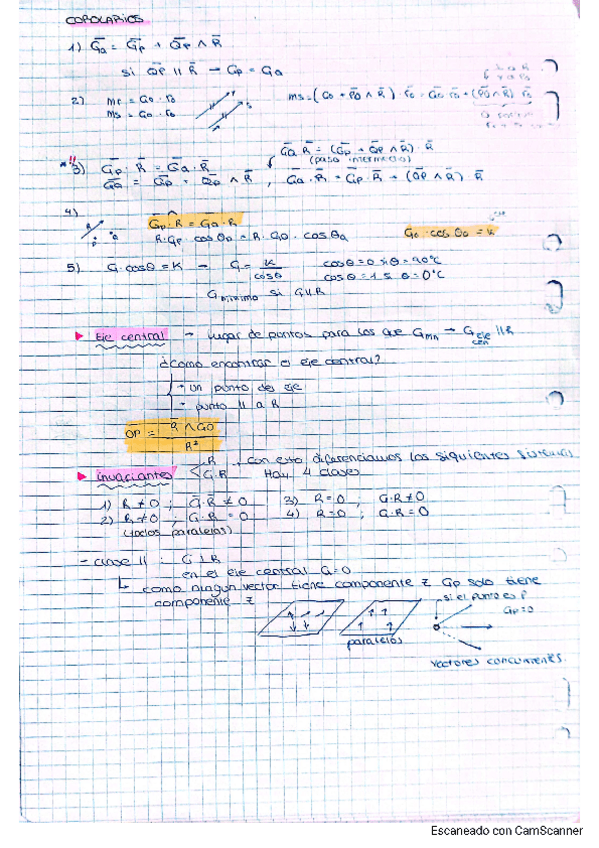 COROLARIOS
1) G̅a = G̅p + Q̅P ∧ R̅
si Q̅P ∥ R̅ → Gp = Ga
2) mr = Go · ro
ms = Go · ro
ms = (Go + P̅O ∧ R̅) · r̅o = G̅o r̅o + (P̅O ∧ R̅) r̅o
G̅a R̅ = (G̅p + Q̅P ∧ R̅) · R̅
(paso intermedio)
*!! 3) G̅p · R̅ = G̅a · R̅
G̅a = G̅p + Q̅p ∧ R̅ , G̅a · R̅ = G̅p · R̅ + (Q̅P ∧ R̅) · R̅
4) G̅p · R̅ = G̅a · R
R · Gp · cos θp = R · Ga · cos θa
Go · cos θo = K
5) G · cosθ = K → G = K / cosθ
cosθ = 0 si θ = 90°C
cosθ = 1 si θ = 0°C
G mínimo si G ∥ R
Eje central → lugar de puntos para los que Gmn → G eje cen ∥ R
¿Cómo encontrar el eje central?
• un punto del eje
• punto ∥ a R
O̅P = R̅ ∧ G̅O / R²
Invariantes R
G·R , con esto diferenciamos los siguientes sistemas
Hay 4 clases
1) R ≠ 0 ; G̅·R̅ ≠ 0 3) R = 0 , G·R ≠ 0
2) R ≠ 0 ; G·R = 0 4) R = 0 ; G·R = 0
(todos paralelos)
- clase II : G ⊥ R
en el eje central G = 0
↳ como ningún vector tiene componente z Gp solo tiene
componente z
si el punto es P
Gp = 0
paralelos
vectores concurrentes
Escaneado con CamScanner